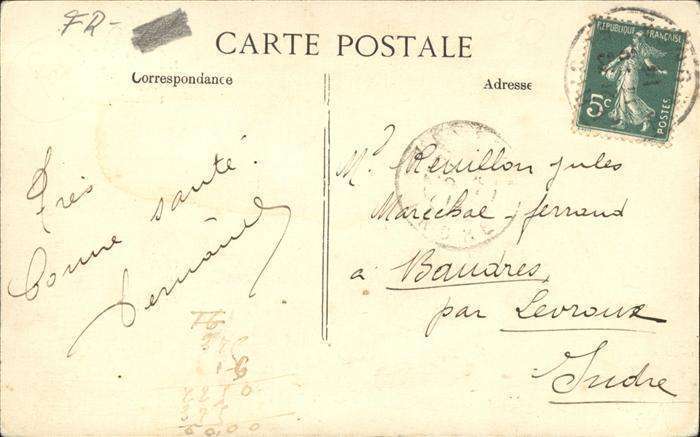 FR-
CARTE POSTALE
Correspondance
Adresse
REPUBLIQUE FRANÇAISE
5c
POSTES
Très
bonne santé.
Mr. Reuillon jules
Maréchal-ferrand
a Baudres,
par Levroux
Indre